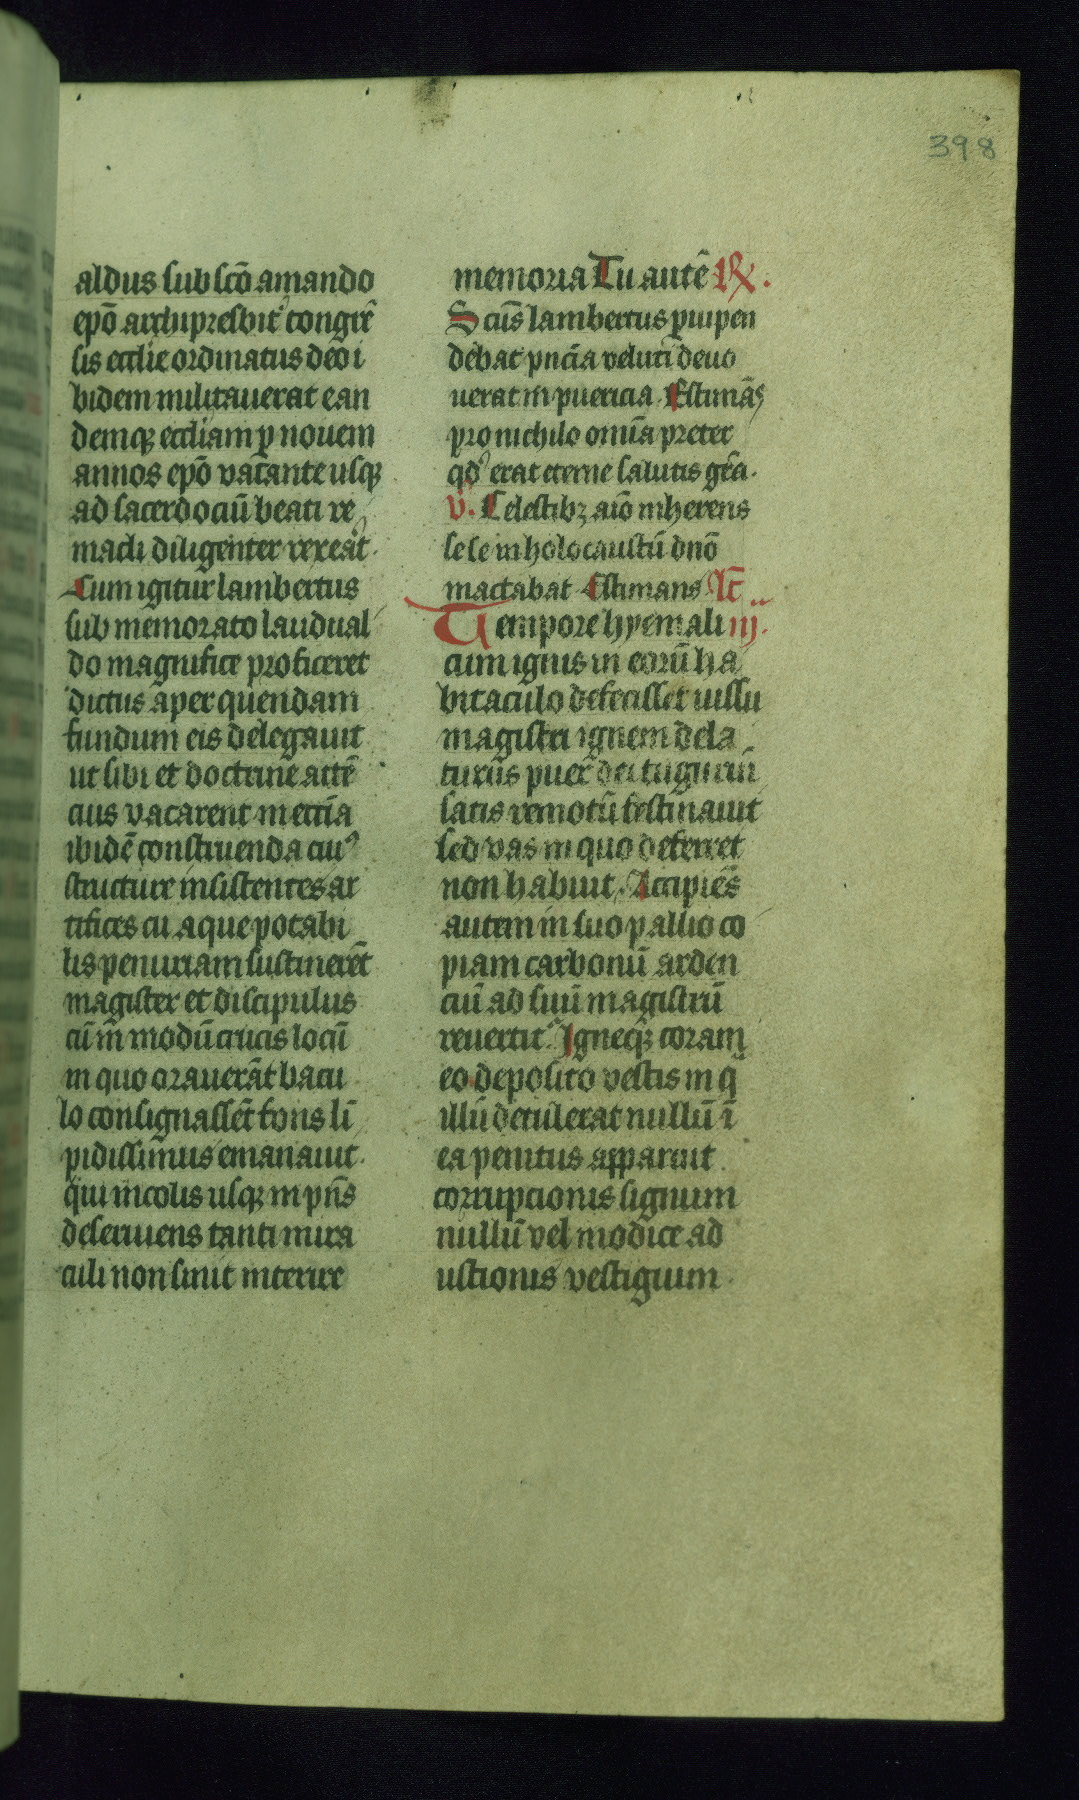 398
aldus sub scō amando
epō archipresbit̄ congr̄
sis ecclīe ordinatus deo i
bidem militauerat ean
demqꝫ eccl̄iam ꝑ nouem
annos epō vacante usqꝫ
ad sacerdociū beati re
macli diligenter rexeāt.
Cum igitur lambertus
sub memorato laudual
do magnifice proficeret
dictus aper quendam
fundum eis delegauit
ut sibi et doctrine attē
cius vacarent in ecc̄ia
ibidē construenda cuiꝰ
structure insistentes ar
tifices cū aque potabi
lis penuriam sustinerēt
magister et discipulus
cū in modū crucis locū
in quo orauerāt bacu
lo consignassēt fons li
pidissimus emanauit.
qui incolis usqꝫ in pn̄s
deseruiens tanti mira
culi non sinit interire
memoria Tu autē R̸.
Scūs lambertus ꝑuipen
debat pn̄cia veluti deuo
uerat in puericia. Estimās
pro nichilo omīa preter
qd̕ erat eterne salutis grā.
v̕. Celestibꝫ aīo inherens
sese in holocaustū dn̄o
mactabat Estimans Lc̄
Tempore hyemali iij.
cum ignis in eorū ha
bitaculo defecisset iussu
magistri ignem dela
turus puer dei tuguriū
satis remotū festinauit
sed vas in quo deferret
non habuit. Accipiēs
autem in suo pallio co
piam carbonū arden
ciū ad suū magistrū
reuertit̕. Igneqꝫ coram
eo deposito vestis in q̄
illū detulerat nullū ī
ea penitus apparuit
corrupcionis signum
nullū vel modice ad
ustionis vestigium